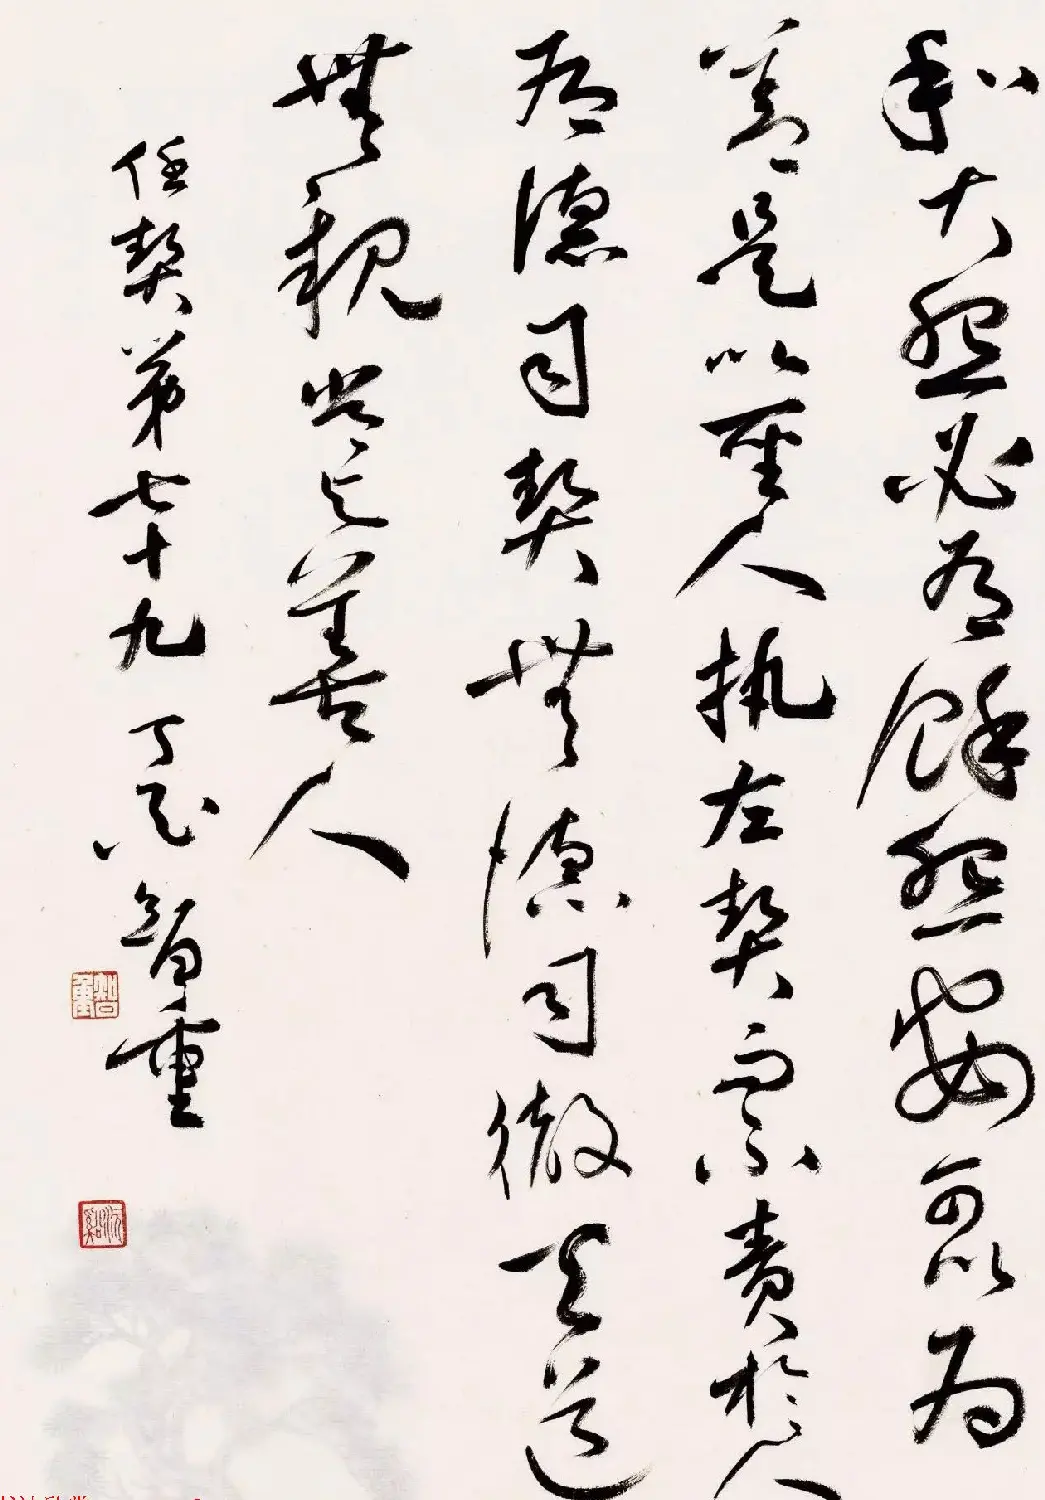 和大怨必有餘怨安可以為
善是以聖人執左契而不責於人
有德司契無德司徹天道
無親常與善人
任契第七十九 丁亥 智重
智重